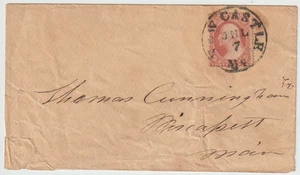 NEW CASTLE
JUL
7
Me
Thomas Cunningham
Wiscassett
Main